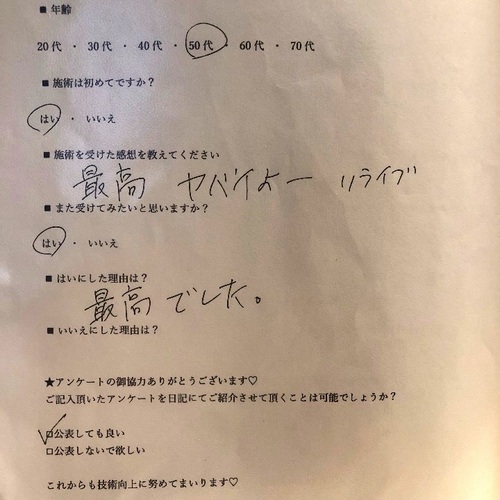 ■ 年齢
20代 ・ 30代 ・ 40代 ・ 50代 ・ 60代 ・ 70代
■ 施術は初めてですか？
はい ・ いいえ
■ 施術を受けた感想を教えてください
最高 ヤバイよー リライブ
■ また受けてみたいと思いますか？
はい ・ いいえ
■ はいにした理由は？
最高でした。
■ いいえにした理由は？
★アンケートの御協力ありがとうございます♡
ご記入頂いたアンケートを日記にてご紹介させて頂くことは可能でしょうか？
☑公表しても良い
□公表しないで欲しい
これからも技術向上に努めてまいります♡